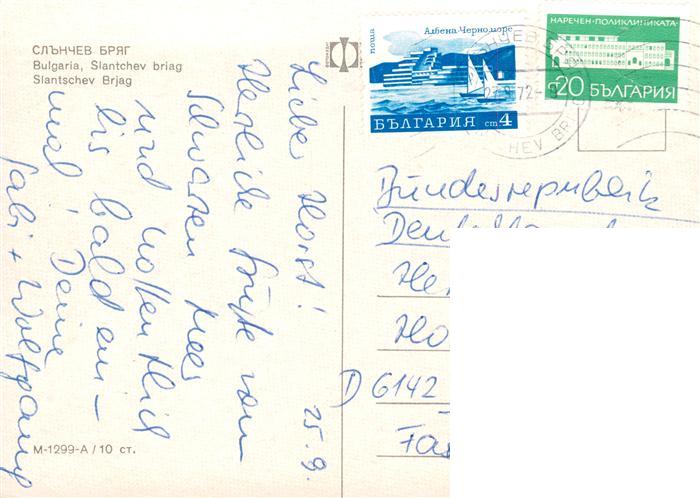 СЛЪНЧЕВ БРЯГ
Bulgaria, Slantchev briag
Slantschev Brjag
25.9.
Lieber Horst!
Herzliche Grüße vom
Schwarzen Meer
und hoffentlich
bis bald ein-
mal! Deine
Gabi + Wolfgang
М-1299-А / 10 ст.
поща
Албена-Черно море
БЪЛГАРИЯ ст 4
НАРЕЧЕН-ПОЛИКЛИНИКАТА
20 БЪЛГАРИЯ
Bundesrepublik
He
Ho
D 6142